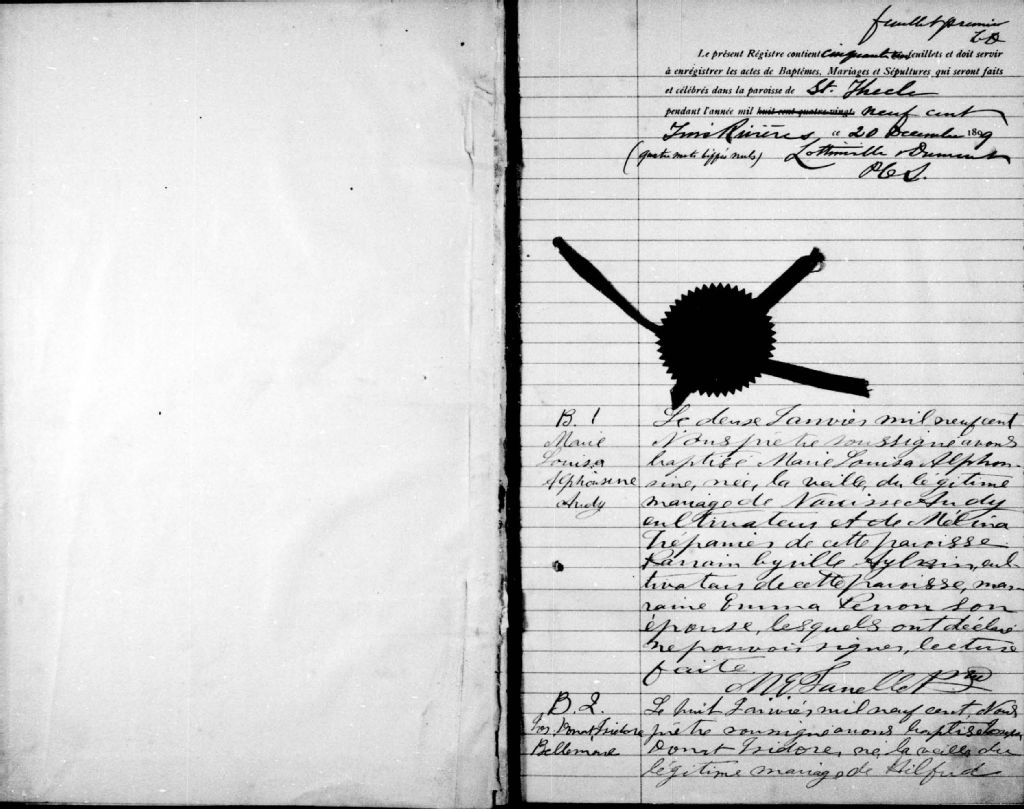 feuillet premier
L D
Le présent Régistre contient cinquante feuillets et doit servir
à enrégistrer les actes de Baptêmes, Mariages et Sépultures qui seront faits
et célébrés dans la paroisse de St. Thecle
pendant l'année mil huit cent quatre-vingt neuf cent
Trois Rivières ce 20 Decembre 1899
(quatre mots biffés nuls) Lottinville & Dumont
P C S.
B. 1
Marie
Louisa
Alphonsine
Audy
Le deux Janvier mil neuf cent
Nous prêtre soussigné avons
baptisé Marie Louisa Alphon-
sine, née, la veille, du légitime
mariage de Narcisse Audy
cultivateur et de Mélina
Trépanier de cette paroisse
Parrain Cyrille, cul-
tivateur de cette paroisse, mar-
raine Emma Perron son
épouse, lesquels ont déclaré
ne pouvoir signer, lecture
faite
Ptre
B. 2.
Jos. Donat, Isidore
Bellemare
Le huit Janvier mil neuf cent, Nous
prêtre soussigné avons baptisé Joseph
Donat Isidore, né, la veille du
légitime mariage de Hilfrid